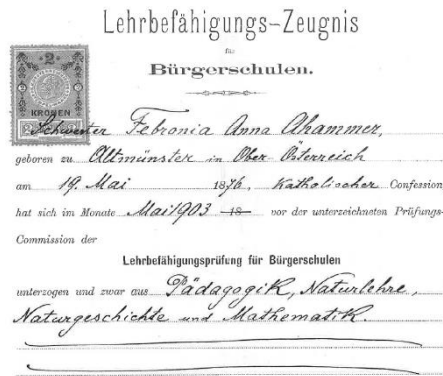 Lehrbefähigungs-Zeugnis
für
Bürgerschulen.
2
KRONEN
Schwester Febronia Anna Ahammer,
geboren zu Altmünster in Ober-Österreich
am 19. Mai 1876, Katholischer Confession
hat sich im Monate Mai 1903 18 vor der unterzeichneten Prüfungs-
Commission der
Lehrbefähigungsprüfung für Bürgerschulen
unterzogen und zwar aus Pädagogik, Naturlehre,
Naturgeschichte und Mathematik.